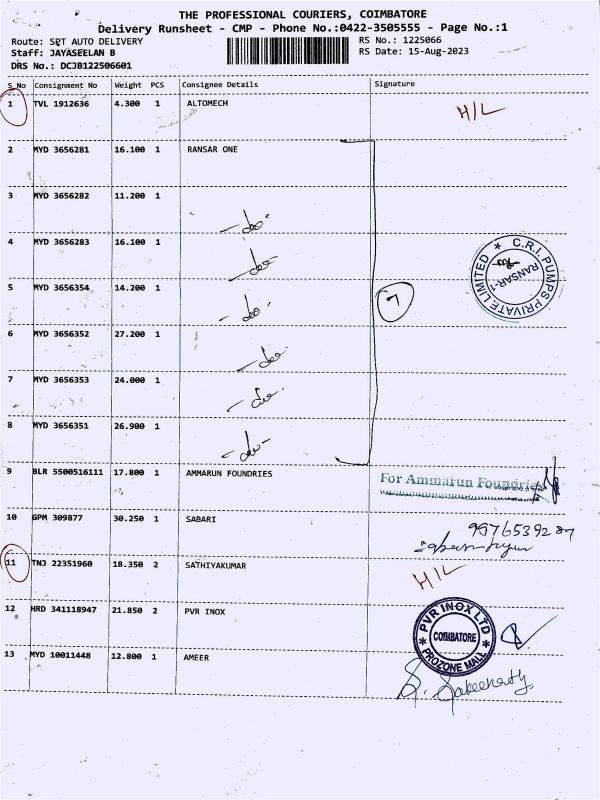 THE PROFESSIONAL COURIERS, COIMBATORE
Delivery Runsheet - CMP - Phone No.:0422-3505555 - Page No.:1
Route: SPT AUTO DELIVERY
RS No.: 1225066
Staff: JAYASEELAN B
RS Date: 15-Aug-2023
DRS No.: DCJB122506601
S_No Consignment No Weight PCS Consignee Details Signature
1 TVL 1912636 4.300 1 ALTOMECH H/L
2 MYD 3656281 16.100 1 RANSAR ONE
3 MYD 3656282 11.200 1
-do-
4 MYD 3656283 16.100 1
-do-
C.R.I. PUMPS PRIVATE LIMITED
RANSAR-1
5 MYD 3656354 14.200 1
-do-
7
6 MYD 3656352 27.200 1
-do-
7 MYD 3656353 24.000 1
-do-
8 MYD 3656351 26.900 1
-do-
9 BLR 5500516111 17.800 1 AMMARUN FOUNDRIES
For Ammarun Foundries
10 GPM 309877 30.250 1 SABARI
11 TNJ 22351960 18.350 2 SATHIYAKUMAR H/L
12 HRD 341118947 21.850 2 PVR INOX
PVR INOX LTD
COIMBATORE
PROZONE MALL
13 MYD 10011448 12.800 1 AMEER